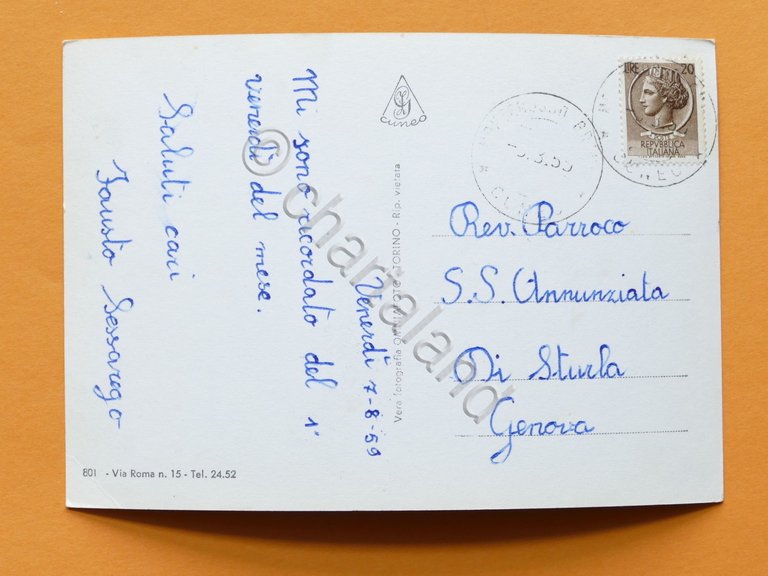 Venerdì 7-8-59
Mi sono ricordato del 1°
venerdì del mese.
Saluti cari
Fausto Sessarego
Cuneo
LIRE 20
REPVBBLICA
ITALIANA
Rev. Parroco
S.S. Annunziata
Di Sturla
Genova
801 - Via Roma n. 15 - Tel. 24.52
TORINO - Rip. vietata
Vera fotografia
© chartaland